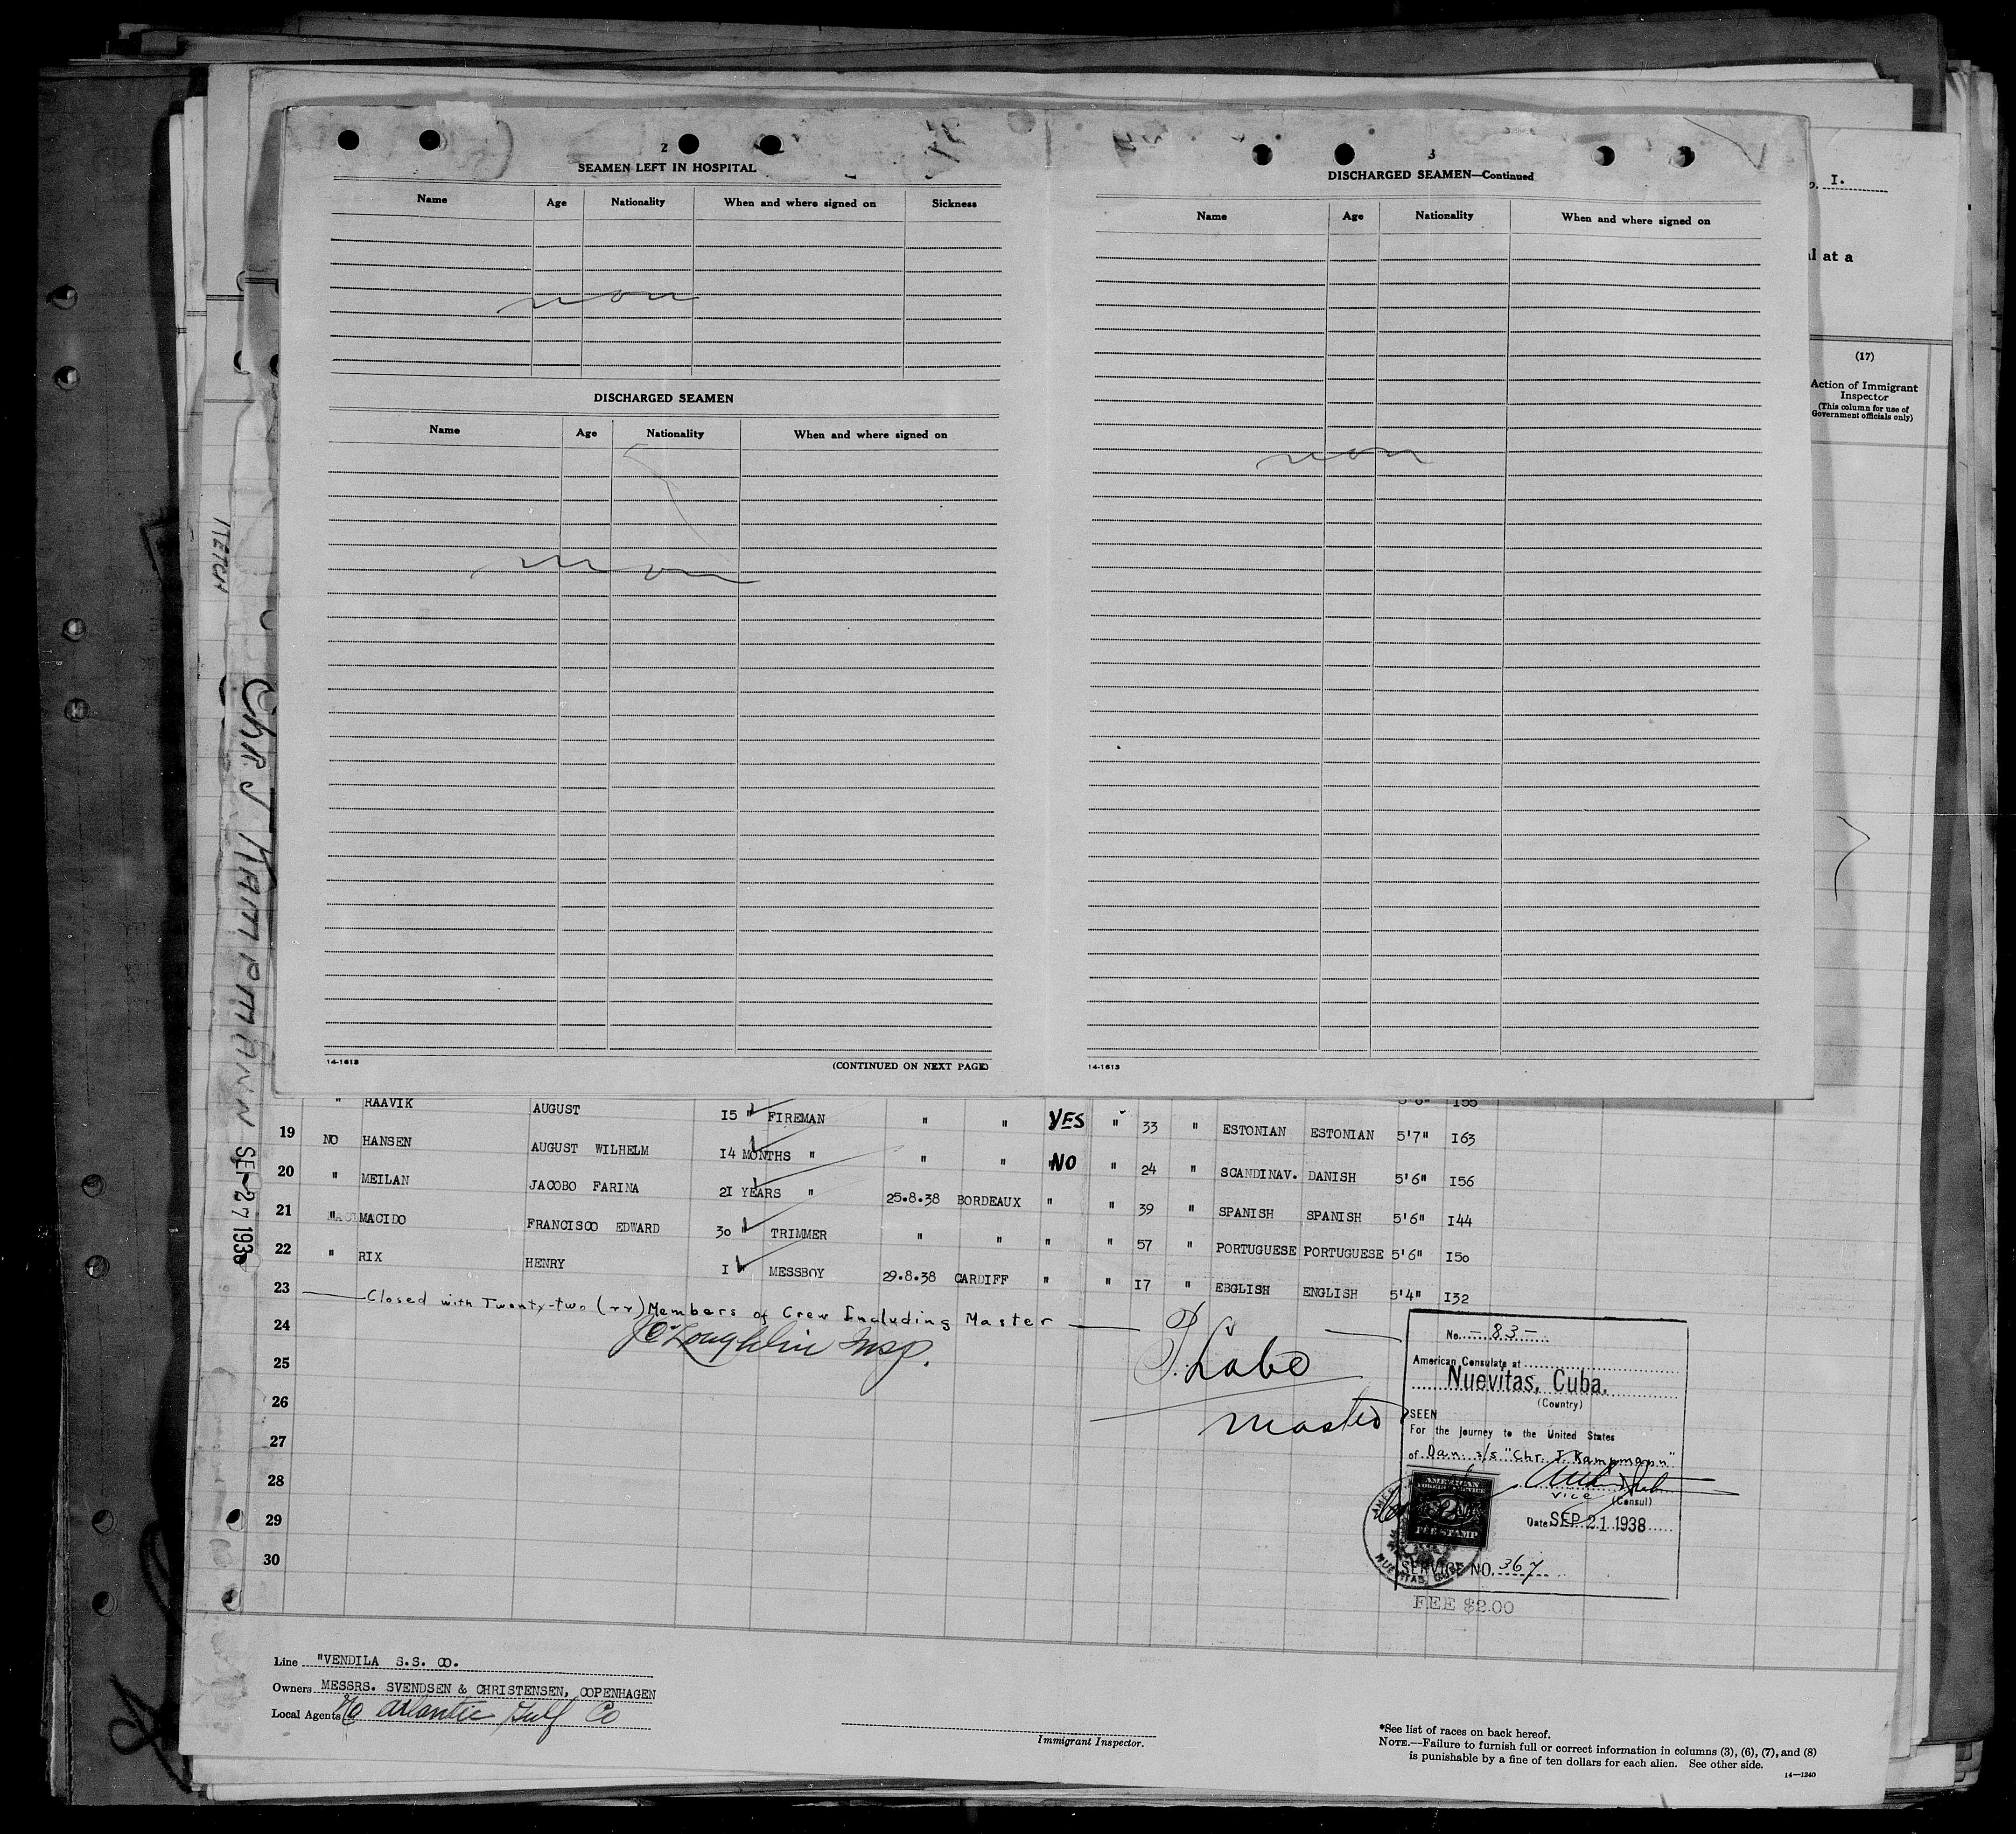 2
SEAMEN LEFT IN HOSPITAL
Name Age Nationality When and where signed on Sickness
non
DISCHARGED SEAMEN
Name Age Nationality When and where signed on
non
14-1613 (CONTINUED ON NEXT PAGE)
3
DISCHARGED SEAMEN—Continued
Name Age Nationality When and where signed on
non
14-1613
I.
al at a
(17)
Action of Immigrant
Inspector
(This column for use of
Government officials only)
Chr J KAMPMANN SEP 27 1938
" RAAVIK AUGUST 15 " FIREMAN " " YES " 33 " ESTONIAN ESTONIAN 5'7" 163
19 NO HANSEN AUGUST WILHELM 14 MONTHS " " " NO " 24 " SCANDINAV. DANISH 5'6" 156
20 " MEILAN JACOBO FARINA 21 YEARS " 25.8.38 BORDEAUX " " 39 " SPANISH SPANISH 5'6" 144
21 " MACIDO FRANCISCO EDWARD 30 " TRIMMER " " " " 57 " PORTUGUESE PORTUGUESE 5'6" 150
22 " RIX HENRY 1 " MESSBOY 29.8.38 CARDIFF " " 17 " EBGLISH ENGLISH 5'4" 132
23 Closed with Twenty-two (22) Members of Crew Including Master
24
25
26
27
28
29
30
Master
No. -83-
American Consulate at
Nuevitas, Cuba.
(Country)
SEEN
For the journey to the United States
of Dan. s/s "Chr. J. Kampmann"
Vice (Consul)
Date SEP 21 1938
AMERICAN
FOREIGN SERVICE
FEE STAMP
SERVICE NO. 367
FEE $2.00
Line "VENDILA S.S. CO.
Owners MESSRS. SVENDSEN & CHRISTENSEN, COPENHAGEN
Local Agents Atlantic Gulf Co
Immigrant Inspector.
*See list of races on back hereof.
NOTE.—Failure to furnish full or correct information in columns (3), (6), (7), and (8)
is punishable by a fine of ten dollars for each alien. See other side.
14—1240